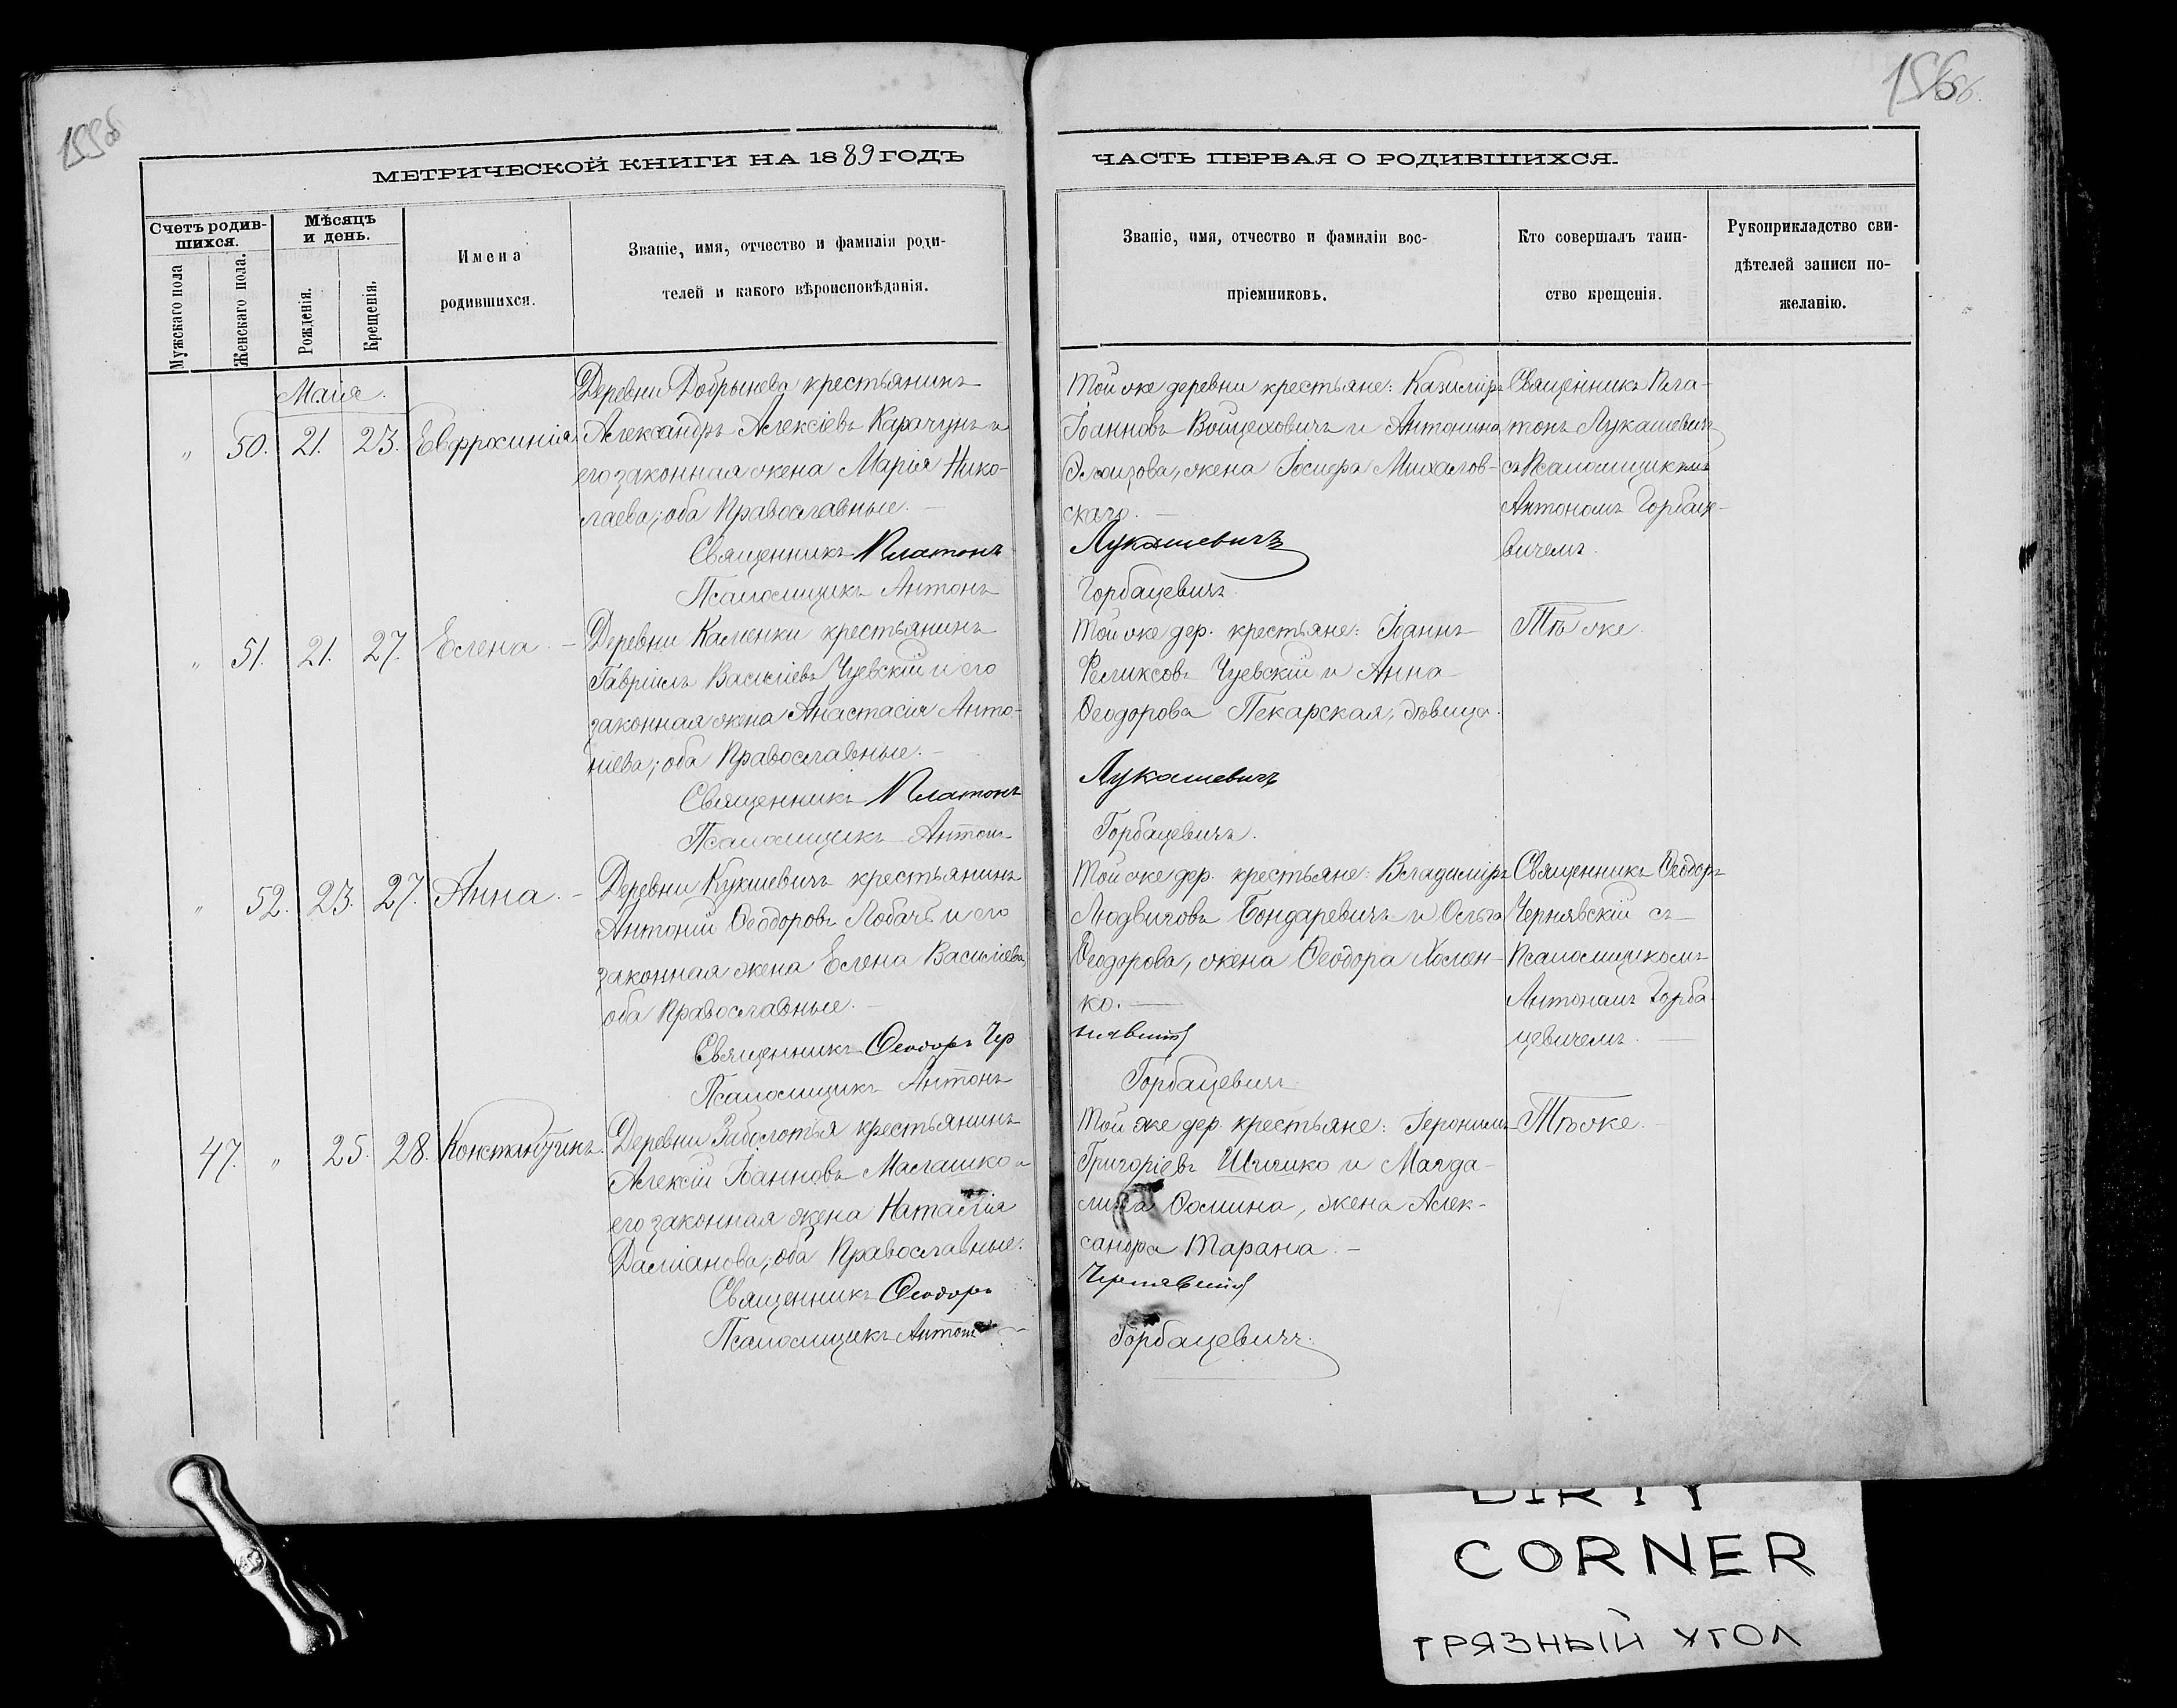 155об
156об.
МЕТРИЧЕСКОЙ КНИГИ НА 1889 ГОДЪ
Счетъ родив-
шихся.
Мужскаго пола
Женскаго пола.
Мѣсяцъ
и день.
Рожденія.
Крещенія.
Имена
родившихся.
Званіе, имя, отчество и фамилія роди-
телей и какого вѣроисповѣданія.
Мая.
" 50. 21. 23. Евфросинія
Деревни Добрынева крестьянинъ
Александръ Алексіевъ Карачунъ и
его законная жена Марія Нико-
лаева; оба Православные. —
Священникъ Платонъ
Псаломщикъ Антонъ
" 51. 21. 27. Елена. —
Деревни Каменки крестьянинъ
Гавріилъ Василіевъ Чуевскій и его
законная жена Анастасія Анто-
ніева; оба Православные. —
Священникъ Платонъ
Псаломщикъ Антонъ
" 52. 23. 27. Анна. —
Деревни Кукшевичъ крестьянинъ
Антоній Ѳеодоровъ Лобачъ и его
законная жена Елена Василіева,
оба Православные. —
Священникъ Ѳеодоръ Чер
Псаломщикъ Антонъ
47. " 25. 28. Константинъ.
Деревни Заболотья крестьянинъ
Алексій Іоанновъ Маглашко и
его законная жена Наталія
Даміанова; оба Православные.
Священникъ Ѳеодоръ
Псаломщикъ Антонъ
ЧАСТЬ ПЕРВАЯ О РОДИВШИХСЯ.
Званіе, имя, отчество и фамиліи вос-
пріемниковъ.
Кто совершалъ таин-
ство крещенія.
Рукоприкладство сви-
дѣтелей записи по-
желанію.
Той же деревни крестьяне: Казиміръ
Іоанновъ Войцеховичъ и Антонина
Элоизова, жена Іосифа Михалов-
скаго. —
Лукашевичъ
Горбацевичъ
Священникъ Пла-
тонъ Лукашевичъ
съ Псаломщикомъ
Антономъ Горбаце-
вичемъ.
Той же дер. крестьяне: Іоаннъ
Феликсовъ Чуевскій и Анна
Ѳеодорова Пекарская, дѣвица.
Лукашевичъ
Горбацевичъ.
Тѣ же.
Той же дер. крестьяне: Владиміръ
Людвиговъ Бондаревичъ и Ольга
Ѳеодорова, жена Ѳеодора Холен-
ко. —
нявскій
Горбацевичъ
Священникъ Ѳеодоръ
Чернявскій съ
Псаломщикомъ
Антономъ Горба-
цевичемъ. —
Той же дер. крестьяне: Іеронимъ
Григоріевъ Шишко и Магда-
лина Ѳомина, жена Алек-
сандра Тарана. —
Чернявскій
Горбацевичъ.
Тѣ же. —
DIRTY
CORNER
ГРЯЗНЫЙ УГОЛ